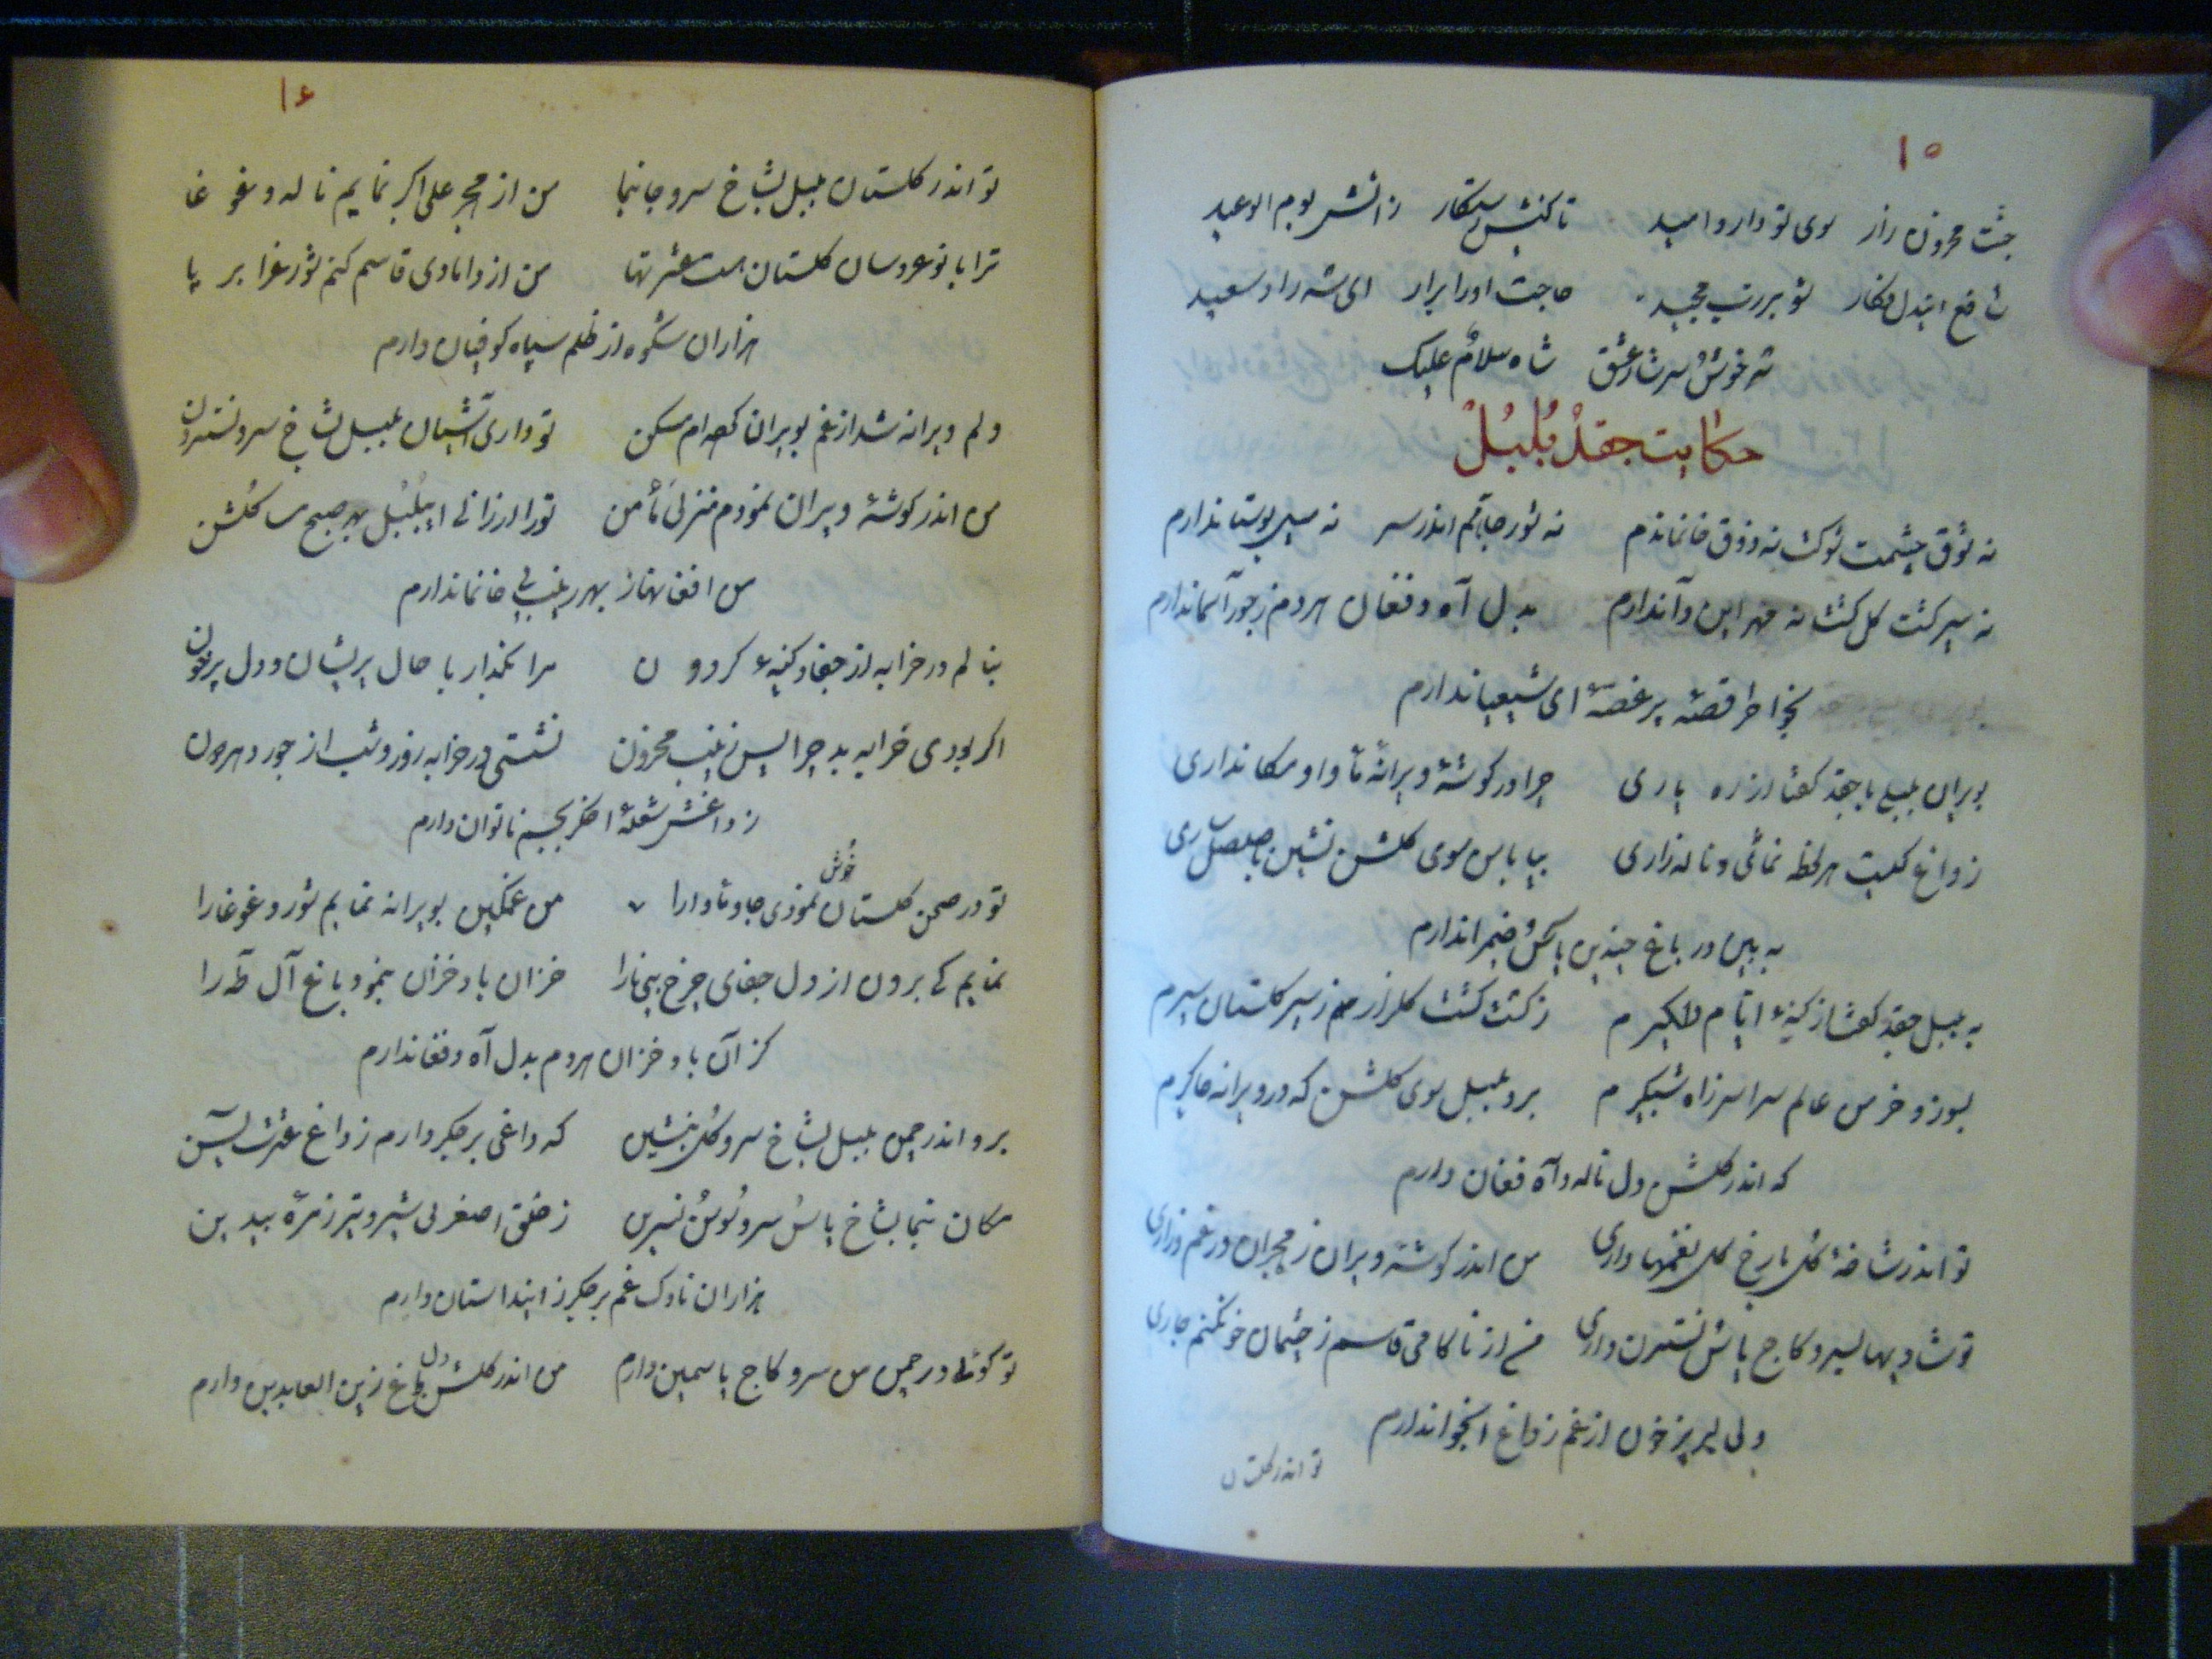 ۱۵
جنت محزون زار سوی تو دارد امید تا کنیش رستگار زاتش یوم الوعید
شافع ایندل فکار تو بر رب مجید حاجت او را برار ای شه راد سعید
شه خوش سرشار عشق شاه سلام علیک
حکایت جغد بلبل
نه شوق چشمت شوکت نه ذوق خانماندارم نه شور جاهم اندر سر نه سیر بوستاندارم
نه سیر کشت گل کشت نه مهر این و آندارم بدل آه و فغان هردم ز جور آسماندارم
بخواطر قصهٔ پر غصهٔ ای شیعیاندارم
بویران بلبلی با جغد گفتا از ره یاری چرا در گوشهٔ ویرانه مأوا و مکانداری
ز داغ کیست هر لحظه نمائی و ناله زاری بیا با من سوی گلشن نشین با صلصل ساری
به بین در باغ چندین یاس و ضیمراندارم
به بلبل جغد گفتا از کینهٔ ایام دلگیرم ز گشت کشت گلزارم ز سیر گلستان سیرم
بسوزد خرمن عالم سراسر ز آه شبگیرم برو بلبل سوی گلشن که در ویرانه جاگیرم
که اندر گلشن دل ناله و آه فغان دارم
تو اندر شاخهٔ گل با رخ گل نغمها داری من اندر گوشهٔ ویران ز هجران در غم و زاری
تو شادیها بسرو کاج یاس نسترن داری من از ناکامی قاسم ز چشمان خون کنم جاری
دلی لبریز خون از غم ز داغ انجواندارم
تو اندر گلستان
۱۶
تو اندر گلستان بلبل بشاخ سرو جا بنما من از هجر علی اکبر نمایم ناله و غوغا
ترا با نوعروسان گلستان هست عشرتها من از دامادی قاسم کنم شور عزا بر پا
هزاران شکوه از ظلم سپاه کوفیان دارم
دلم ویرانه شد از غم بویران کرده ام مسکن تو داری آشیان بلبل بشاخ سرو نسترون
من اندر گوشهٔ ویران نمودم منزل مأمن تو را ارزانی ای بلبل بهر صبح مسا گلشن
من افغانها ز بهر زینب بی خانماندارم
بنالم در خرابه از جفا و کینهٔ گردون مرا بگذار با حال پریشان و دل پر خون
اگر بودی خرابه بد چرا پس زینب محزون نشستی در خرابه روز و شب از جور دهر دون
ز داغش شعلهٔ اخگر بجسم ناتوان دارم
تو در صحن گلستان خوش نمودی جا و مأوا را من غمگین بویرانه نمایم شور و غوغا را
نمایم کی برون از دل جفای چرخ مینا را خزان باد خزان بنمود باغ آل طه را
کز آن باد خزان هردم بدل آه و فغاندارم
برو اندر چمن بلبل بشاخ سرو گل بنشین که داغی بر جگر دارم ز داغ عترت یسین
مکان بنما بشاخ یاس سرو سوسن نسرین ز حلق اصغر بی شیر و تیر زمرهٔ بیدین
هزاران ناوک غم بر جگر ز ایندا ستان دارم
تو گوئی در چمن من سرو کاج یاسمین دارم من اندر گلشن دل داغ زین العابدین دارم